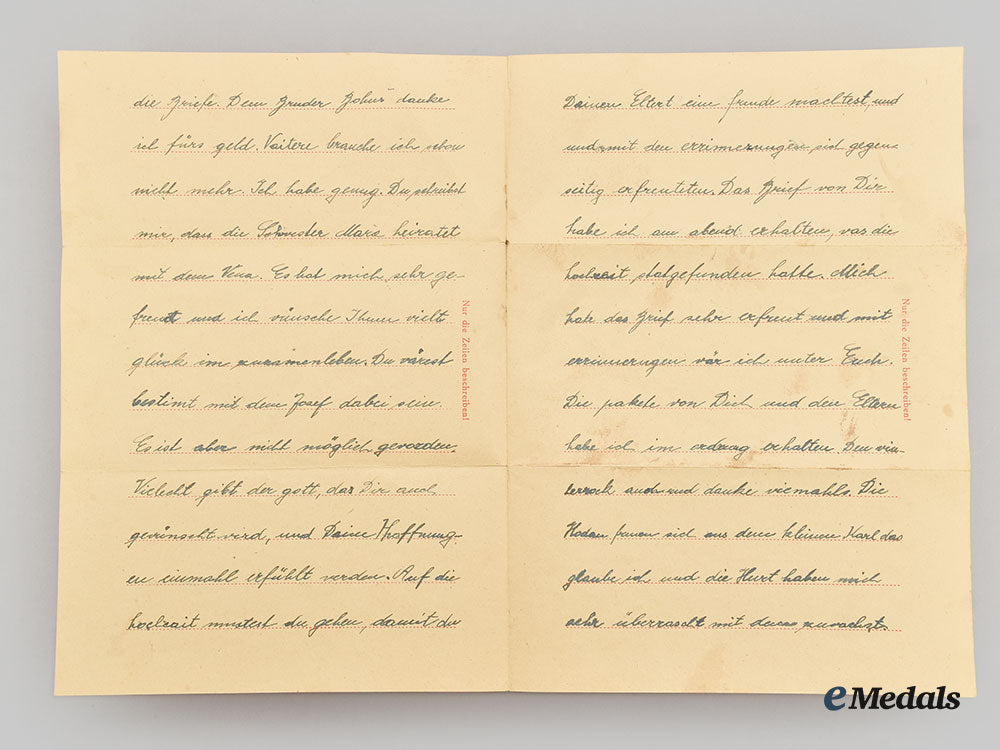 die Briefe. Dem Bruder Bohuš danke
ich fürs geld. Vaitere brauche ich schon
nicht mehr. Ich habe genug. Du schreibst
mir, dass die Schvester Marie heiratet
mit dem Vena. Es hat mich sehr ge-
freut und ich vünsche Ihnen vielt
glück im zusamenleben. Du värest
bestimt mit dem Josef dabei sein.
Es ist aber nicht möglich gevorden.
Vielecht gibt der gott, das Dir auch
gevünscht vird, und Daine Hoffnung-
en einmahl erfühlt verden. Auf die
hochzait mustest du gehen, damit du
Nur die Zeilen beschreiben!
Dainen Eltert eine freude machtest, und
und mit den errinnerungen sich gegen-
seitig erfreuteten. Das Brief von Dir
habe ich am abend erhalten, vas die
hochzait statgefunden hatte. Mich
hate das Brief sehr erfreut und mit
errinnerugen vär ich unter Euch.
Die pakete von Dich und den Eltern
habe ich im ordnug erhalten. Den vin-
terrock auch und danke viemahls. Die
freuen sich aus dem kleinen Karl das
glaube ich und die Hurt haben mich
sehr überrascht mit dem zuvachzt.
Nur die Zeilen beschreiben!
eMedals